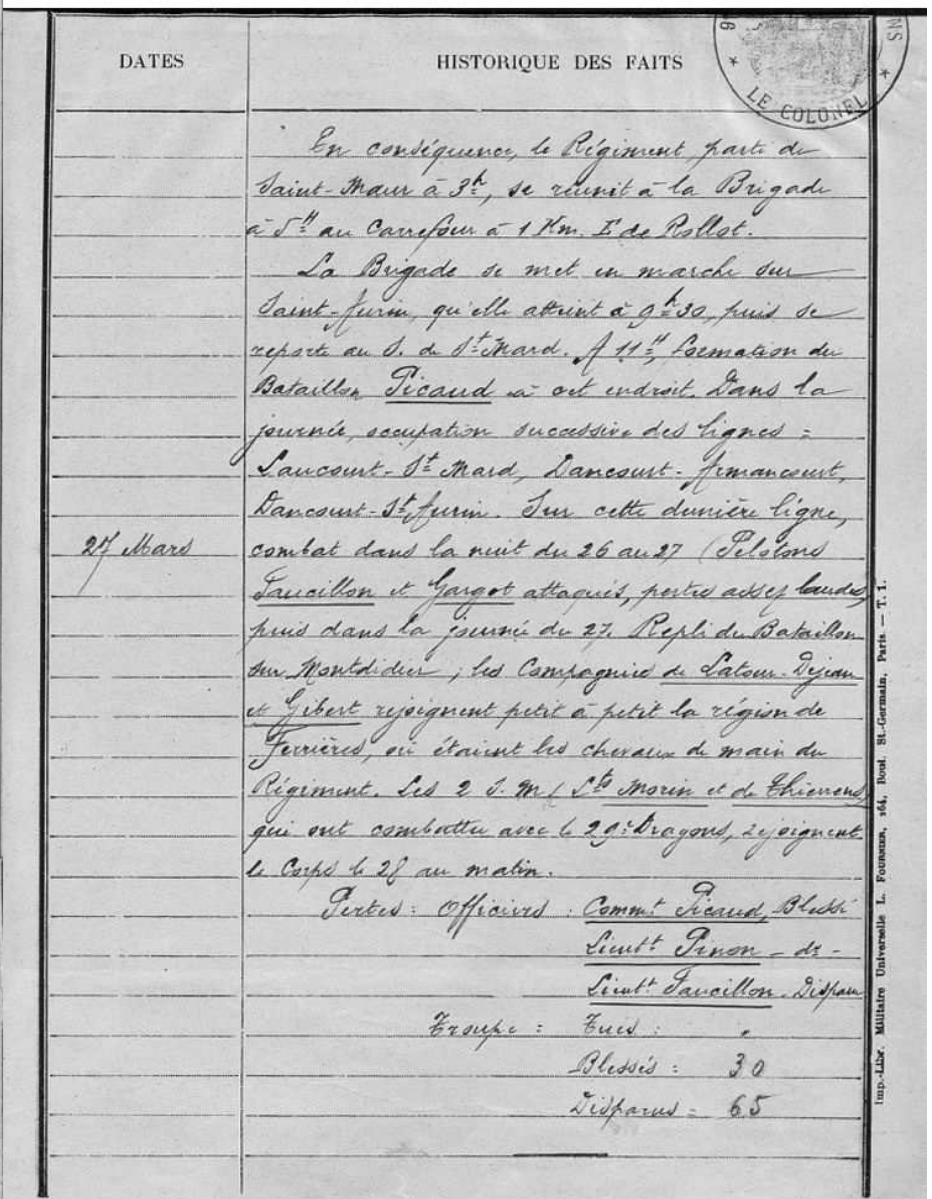 DATES
HISTORIQUE DES FAITS
* LE COLONEL *
En conséquence, le Régiment, parti de
Saint-Maur à 3h, se réunit à la Brigade
à 5H au Carrefour à 1 Km. E de Rollot.
La Brigade se met en marche sur
Saint-Aurin, qu'elle atteint à 9h30, puis se
reporte au S. de St Mard. A 11H, formation du
Bataillon Picaud à cet endroit. Dans la
journée, occupation successive des lignes :
Laucourt - St Mard, Dancourt - Armancourt,
Dancourt - St Aurin. Sur cette dernière ligne,
27 Mars
combat dans la nuit du 26 au 27 (Pelotons
Faucillon et Gargot attaqués, pertes assez lourdes,
puis dans la journée du 27. Repli du Bataillon
sur Montdidier ; les Compagnies de Latour-Dejean
et Gibert rejoignent petit à petit la région de
Ferrières, où étaient les chevaux de main du
Régiment. Les 2 S. M. Lts Morin et de Thierrens,
qui ont combattu avec le 29e Dragons, rejoignent
le Corps le 28 au matin.
Pertes : Officiers : Commt Picaud, Blessé
Lieutt Pinon - do -
Lieutt Faucillon. Disparu
Troupe : Tués : "
Blessés : 30
Disparus : 65
Imp.-Libr. Militaire Universelle L. FOURNIER, 264, Boul. St-Germain, Paris. — T. 1.